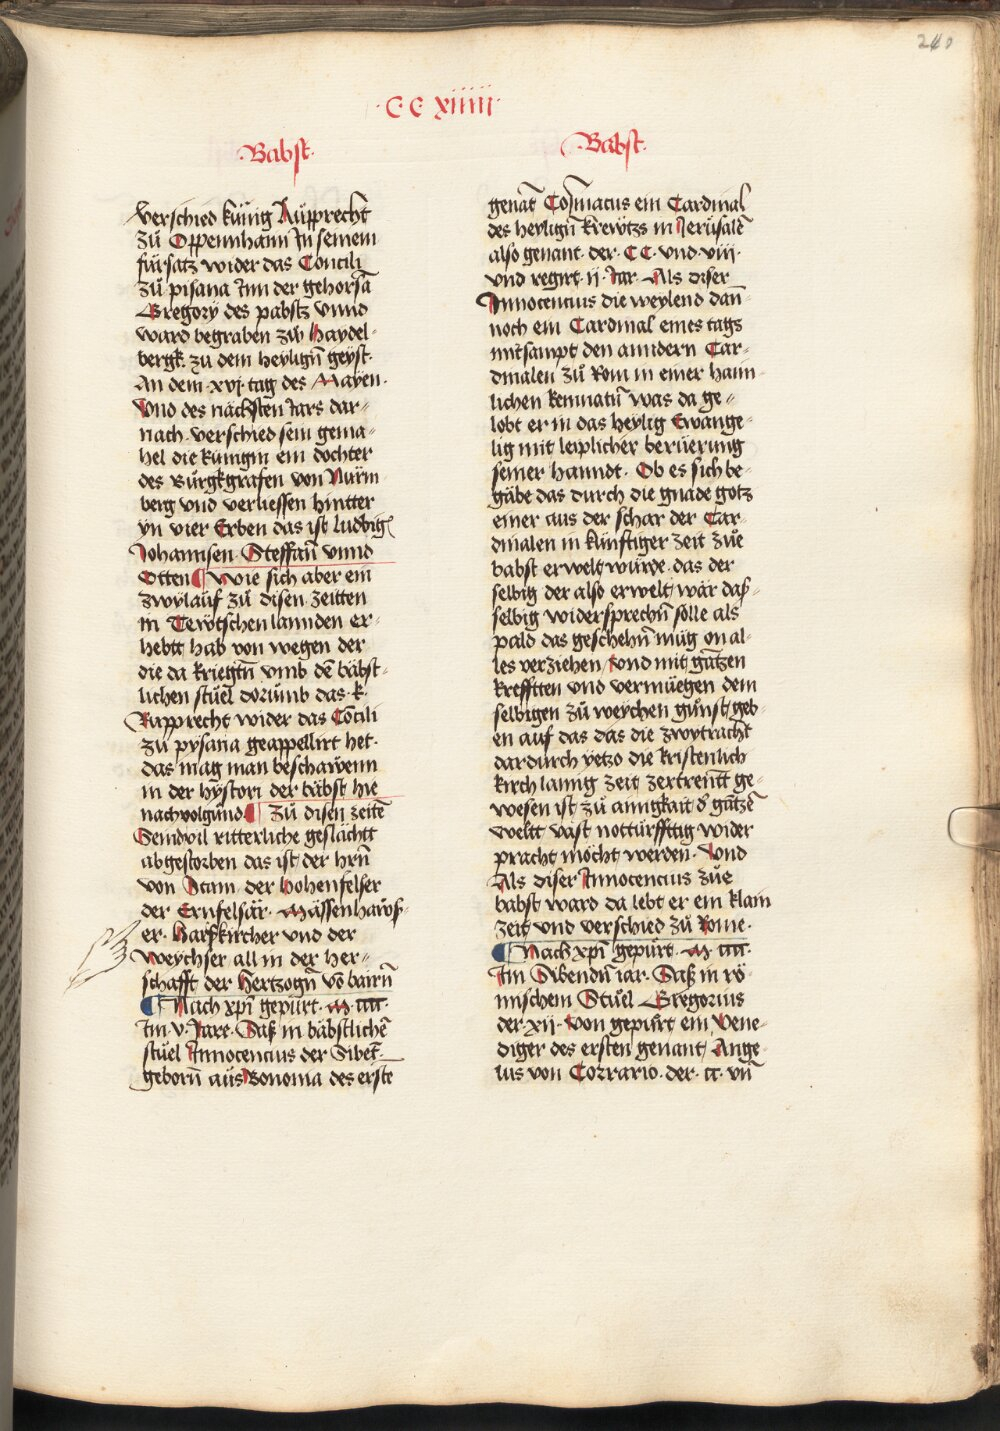 240
·C C xiiiii·
·Babst·
verschied kůnig Rupprecht
zů Oppennhann In seinem
fürsatz wider das Concili
zů pisana Inn der gehorsā
Gregory des pabstz vnnd
ward begraben zůo Haydel-
bergk. zu dem heyligñ geyst.
An dem .xvj. tag des Mayen.
Vnd des nächsten Jars dar-
nach verschied sein gema-
hel die kunigin ein dochter
des Burgkgrafen von Nurm
berg vnd verliessen hintter
yn vier Erben das ist ludbig
Johannsen Steffañ vnnd
Otten ¶ Wie sich aber ein
zwylauf zů disen zeitten
in Tewtschen lannden er-
hebtt hab von wegen der
die da kriegtñ vmb dē bäbst-
lichen stuel dorumb das .k.
Rupprecht wider das Cōcili
zů pysana geappellirt het.
das mag man beschawenn
in der hystori der bäbst hie
nachuolgund. ¶ Zů disen zeitē
Sendvil ritterliche geslächtt
abgestorben das ist der hrñ
von Stain der Hohenfelser
der Ernfelsär. Mässenhawß-
er. Harskircher vnd der
Weychser all in der Her-
schafft der Hertzogñ vō bairñ
¶ Nach xpī gepurt. M. cccc.
Im .v. Jare. Saß in bäbstlichē
stuel Innocencius der Sibēt.
geborñ aus Bononia des erste
·Babst·
genāt Cosmatus ein Cardinal
des heyligñ krewtzs in Jerusalē
also genant. der. CC. vnd viii.
vnd regirt .ii. Jar. Als diser
Innocencius die weylend dan-
noch ein Cardinal eines tags
mitsampt den anndern Car-
dinalen zů Rom in einer haim
lichen kemnatñ was da ge-
lobt er in das heylig Ewange-
lig mit leiplicher beruerung
seiner hanndt. Ob es sich be-
gäbe das durch die gnade gotz
einer aus der schar der Car-
dinalen in künftiger zeit zue
babst erwelt wurde. das der
selbig der also erwelt wär das-
selbig widersprechñ solle als
pald das geschehñ müg on al-
les verziehen / Vnd mit gätzen
krefftten vnd vermüegen dem
selbigen zů weychen gunst geb-
en auf das das die zwytracht
dardurch yetzo die kristenlich
kirch lanng zeit zertrentt ge-
wesen ist zů ainigkait dˀ gätzē
weltt väst notturfftig wider
pracht möcht werden. Vnd
Als diser Innocencius zue
babst ward da lebt er ein klain
zeit vnd verschied zů Rome.
¶ Nach xpī gepurt. M. cccc.
Im Sibendñ iar. Saß in rö
mischem Stuel Gregorius
der .xii. Von gepurt ein Vene-
diger des ersten genant Ange-
lus von Corrario. der. cc. vñ